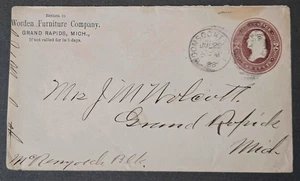 Return to
Worden Furniture Company,
GRAND RAPIDS, MICH.,
If not called for in 5 days.
Mrs J M Wolcott
Grand Rapids
Mich
Blk.